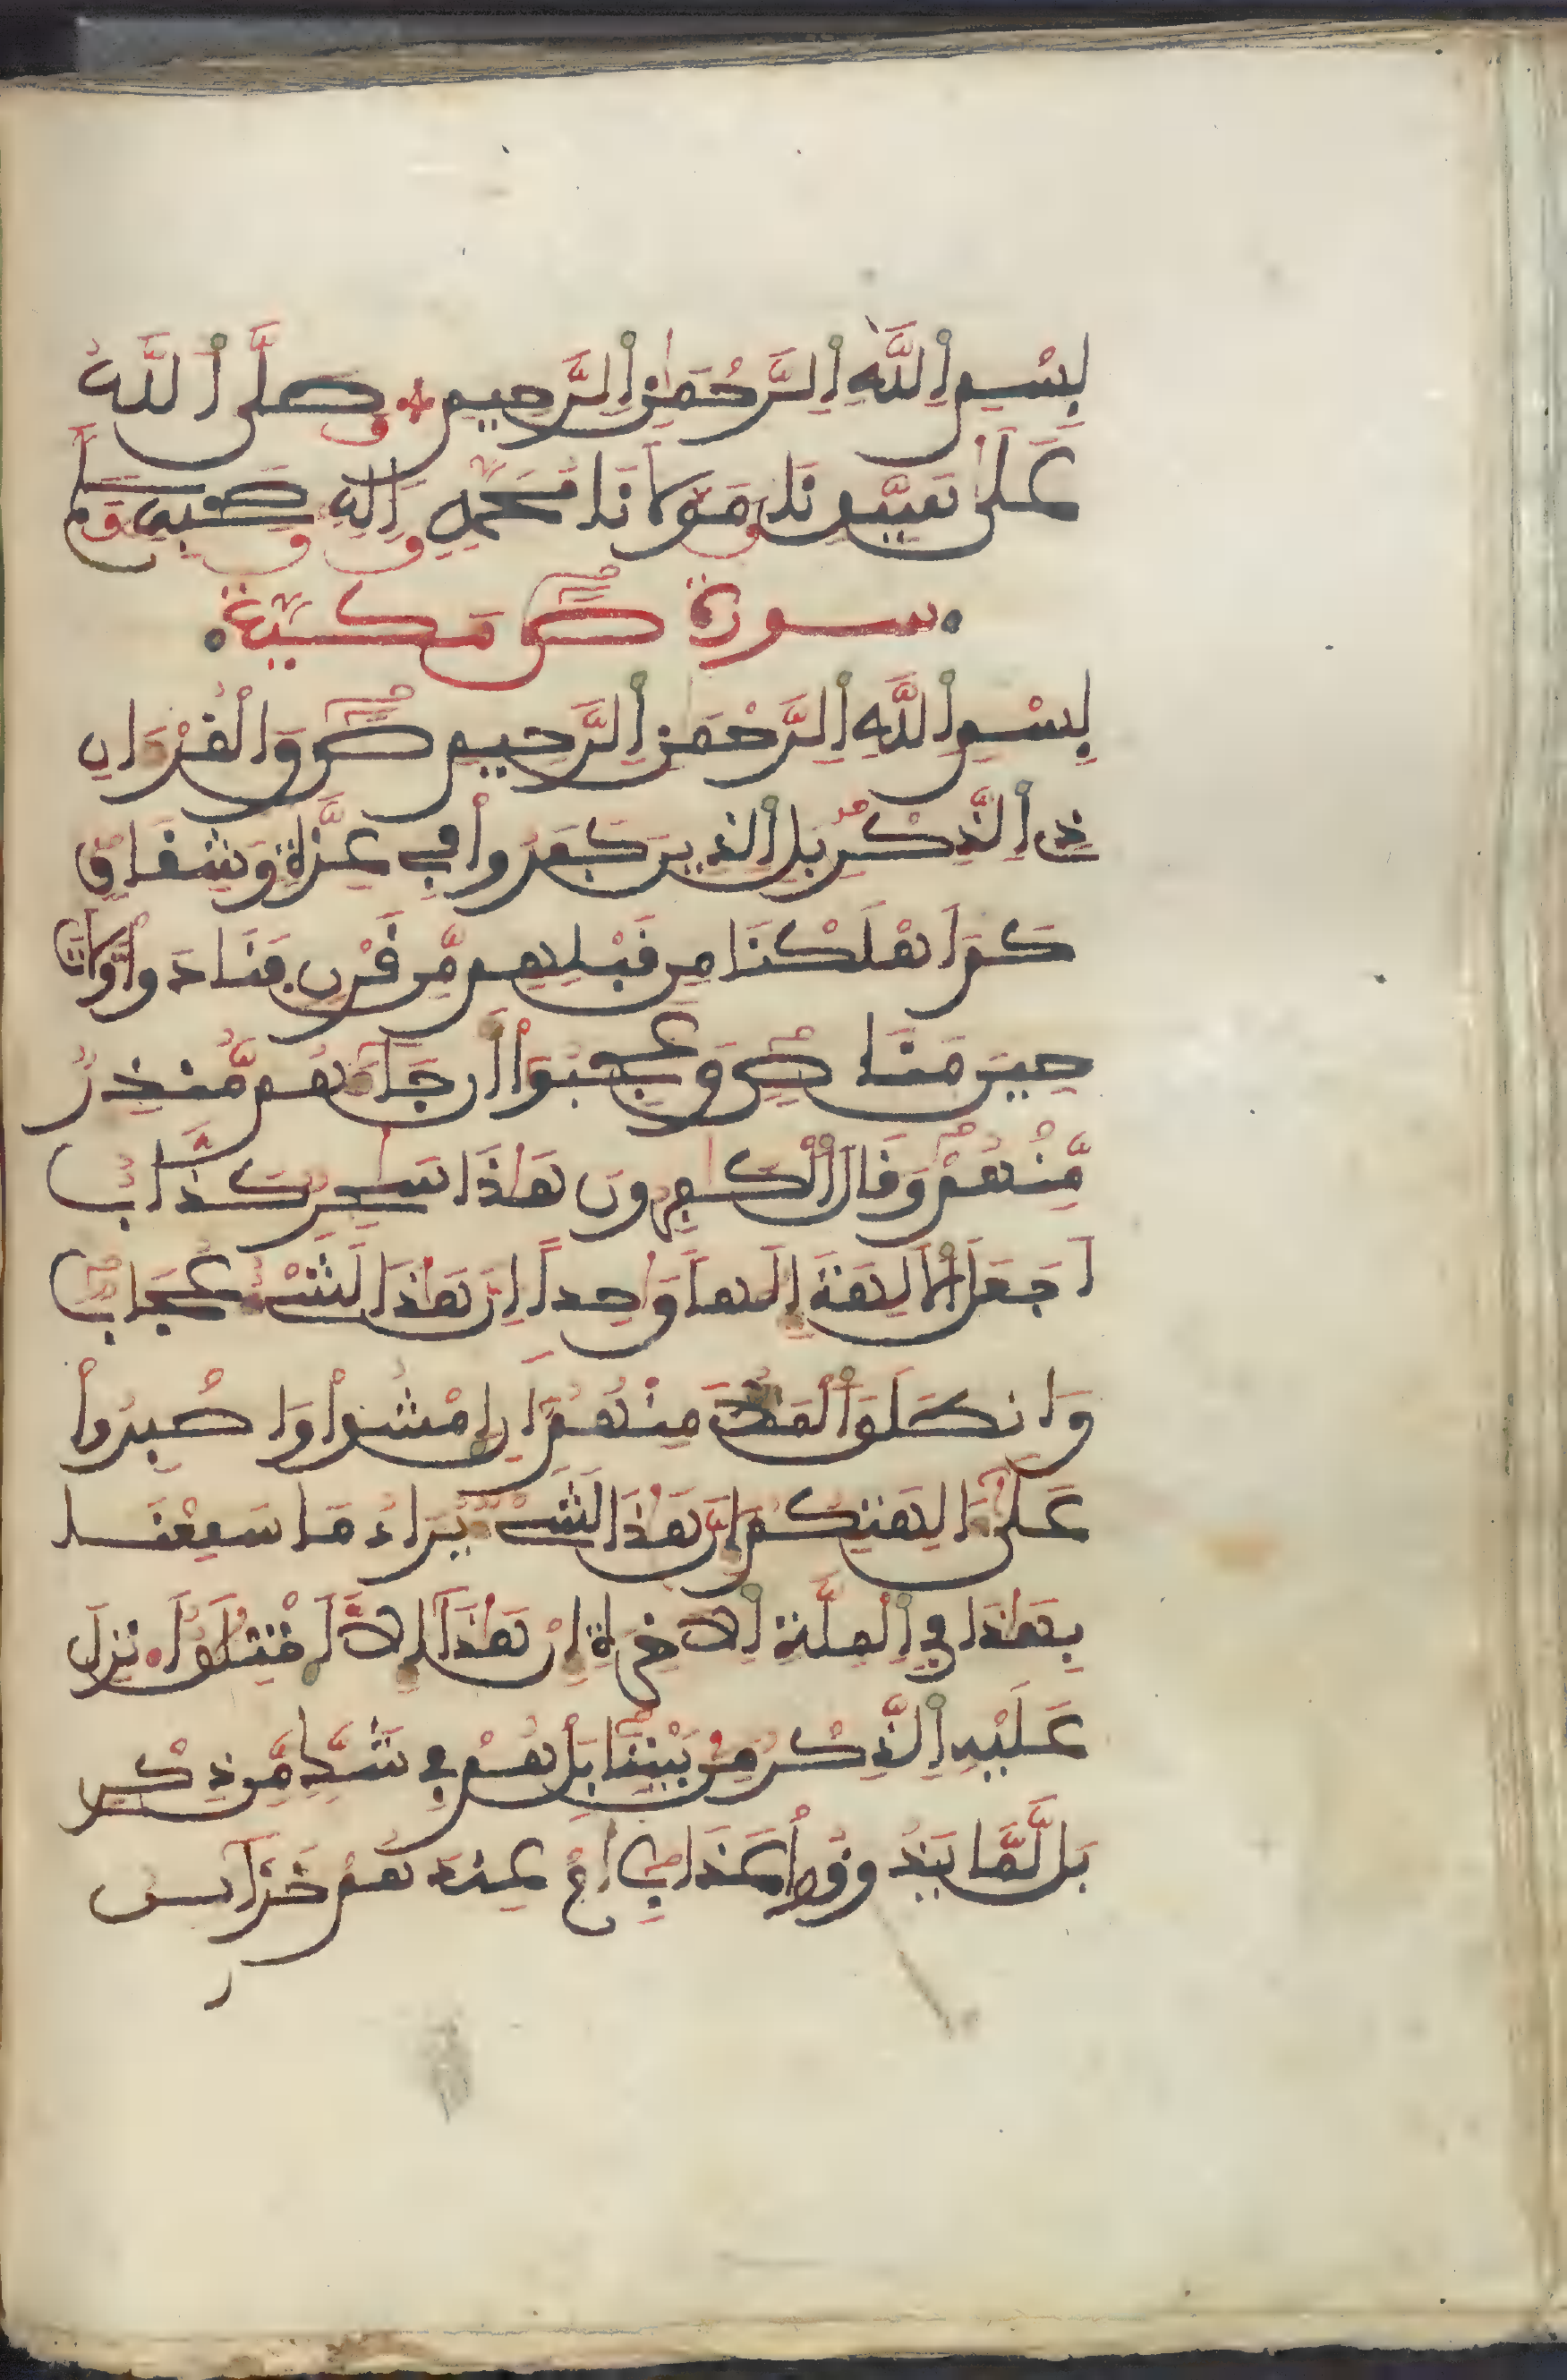 بِسْمِ اِللَّهِ اِلرَّحْمَٰنِ اِلرَّحِيمِ وصَلَّى اَللَّهُ
عَلَىٰ سَيِّدِنَا وَمَوْلَانَا مُحَمَّدٍ وَءَالِهِ وَصَحْبِهِ وَسَلَّمَ
سورة صٓ مَكيّة
بِسْمِ اِللَّهِ اِلرَّحْمَٰنِ اِلرَّحِيمِ صٓ وَالْقُرْءَانِ
ذِى اِلذِّكْرِ بَلِ اِلذِينَ كَفَرُواْ فِى عِزَّةٍ وَشِقَاقٍ
كَمَ اَهْلَكْنَا مِن قَبْلِهِم مِّن قَرْنٍ فَنَادَواْ وَّلَاتَ
حِينَ مَنَاصٍ وَعَجِبُوٓاْ أَن جَآءَهُم مُّنذِرٌ
مِّنْهُمْ وَقَالَ اَلْكَٰفِرُونَ هَٰذَا سَٰحِرٌ كَذَّابٌ
اَجَعَلَ اَلَالِهَةَ إِلَٰهاً وَٰحِداً اِنَّ هَٰذَا لَشَےْءٌ عُجَابٌ
وَانطَلَقَ اَلْمَلَأُ مِنْهُمُۥٓ أَنِ اِمْشُواْ وَاصْبِرُواْ
عَلَىٰٓ ءَالِهَتِكُمُۥٓ إِنَّ هَٰذَا لَشَےْءٌ يُرَادُ مَا سَمِعْنَا
بِهَٰذَا فِى اِلْمِلَّةِ اِلَاخِرَةِ إِنْ هَٰذَآ إِلَّا اَخْتِلَٰقٌ اَ۟نزِلَ
عَلَيْهِ اِلذِّكْرُ مِنۢ بَيْنِنَا بَلْ هُمْ فِى شَكٍّ مِّن ذِكْرِى
بَل لَّمَّا يَذُوقُواْ عَذَابِ أَمْ عِندَهُمْ خَزَآئِنُ
ر